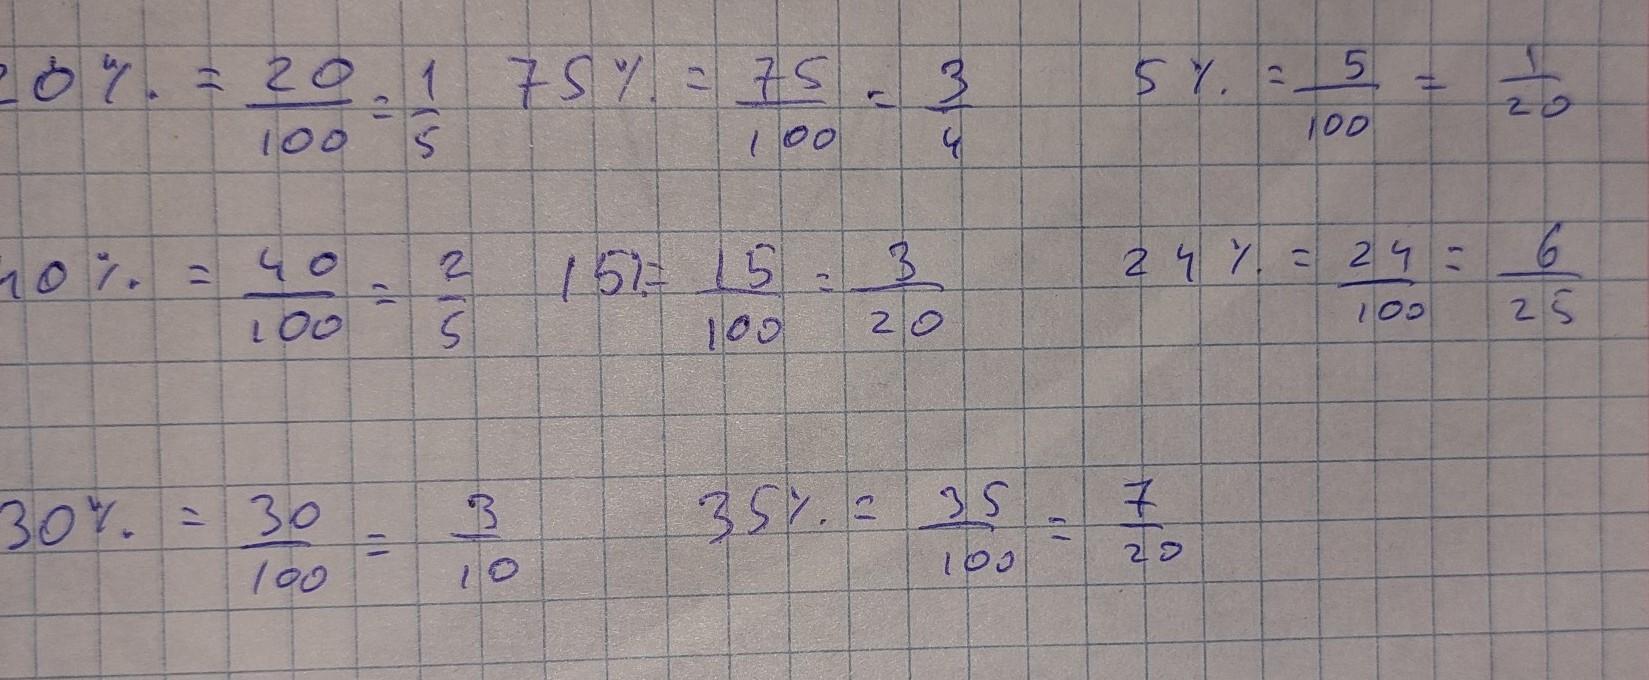 20% = 20/100 = 1/5 75% = 75/100 = 3/4 5% = 5/100 = 1/20
40% = 40/100 = 2/5 15% = 15/100 = 3/20 24% = 24/100 = 6/25
30% = 30/100 = 3/10 35% = 35/100 = 7/20